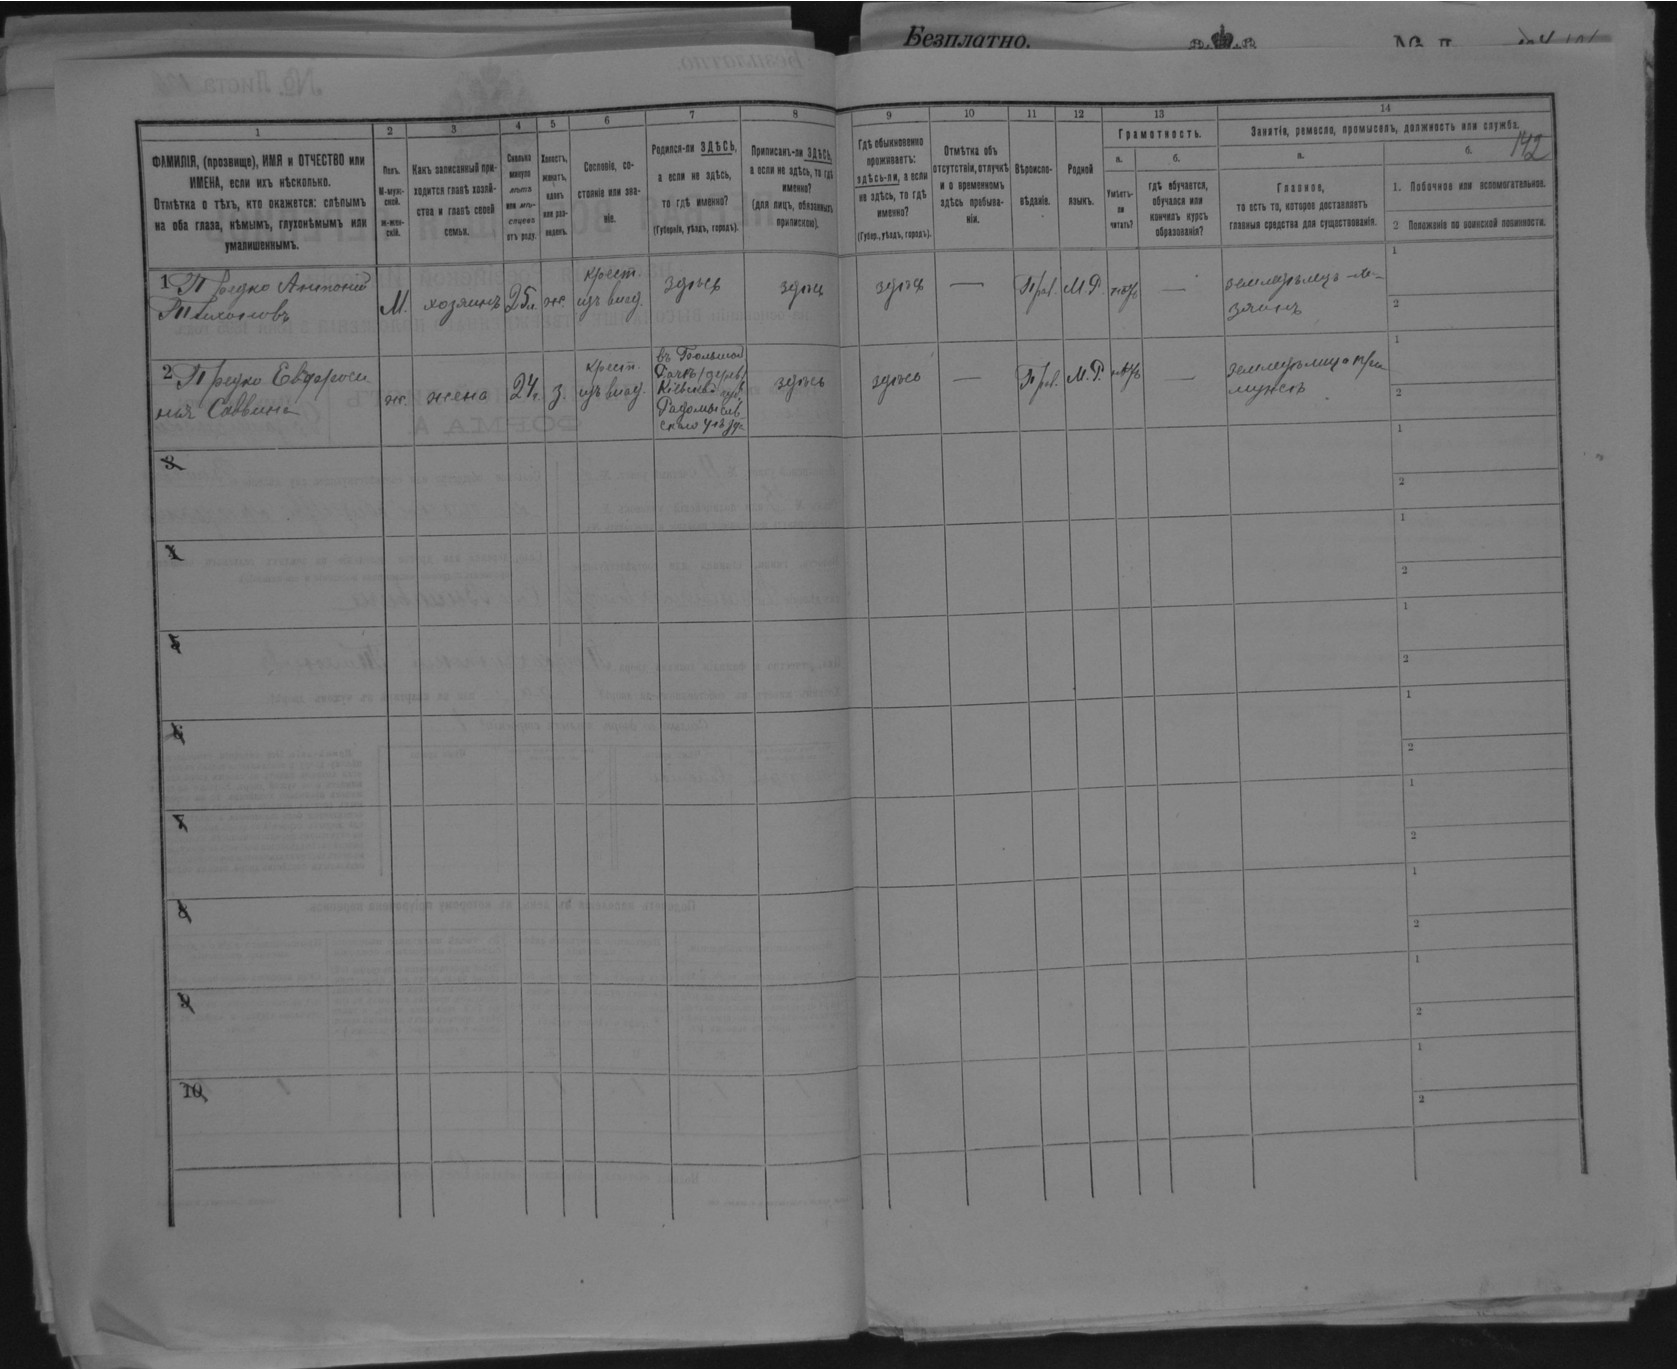 Безплатно.
142
1
2
3
4
5
6
7
8
9
10
11
12
13
14
ФАМИЛІЯ, (прозвище), ИМЯ и ОТЧЕСТВО или
ИМЕНА, если ихъ нѣсколько.
Отмѣтка о тѣхъ, кто окажется: слѣпымъ
на оба глаза, нѣмымъ, глухонѣмымъ или
умалишеннымъ.
Полъ.
М-муж-
ской.
ж-жен-
скій.
Какъ записанный при-
ходится главѣ хозяй-
ства и главѣ своей
семьи.
Сколько
минуло
лѣтъ
или мѣ-
сяцевъ
отъ роду.
Холостъ,
женатъ,
вдовъ
или раз-
веденъ.
Сословіе, со-
стояніе или зва-
ніе.
Родился-ли ЗДѢСЬ,
а если не здѣсь,
то гдѣ именно?
(Губернія, уѣздъ, городъ).
Приписанъ-ли ЗДѢСЬ,
а если не здѣсь, то гдѣ
именно?
(для лицъ, обязанныхъ
припискою).
Гдѣ обыкновенно
проживаетъ:
здѣсь-ли, а если
не здѣсь, то гдѣ
именно?
(Губер., уѣздъ, городъ).
Отмѣтка объ
отсутствіи, отлучкѣ
и о временномъ
здѣсь пребыва-
ніи.
Вѣроиспо-
вѣданіе.
Родной
языкъ.
Грамотность.
а.
Умѣетъ-
ли
читать?
б.
гдѣ обучается,
обучался или
кончилъ курсъ
образованія?
Занятія, ремесло, промыселъ, должность или служба.
а.
Главное,
то есть то, которое доставляетъ
главныя средства для существованія.
б.
1. Побочное или вспомогательное.
2 Положеніе по воинской повинности.
1 Предко Антоній
Тихоновъ
М.
хозяинъ
25
ж.
крест.
изъ влад.
здѣсь
здѣсь
здѣсь
—
Прав.
М.Р.
нѣтъ
—
1
2
2 Предко Евфроси
нія Саввина
ж.
жена
24
з.
крест.
изъ влад.
въ
Кіевской губ.
Радомысль-
скаго уѣзда
здѣсь
здѣсь
—
Прав.
М.Р.
нѣтъ
—
при
мужѣ
1
2
3
1
2
4
1
2
5
1
2
6
1
2
7
1
2
8
1
2
9
1
2
10
1
2